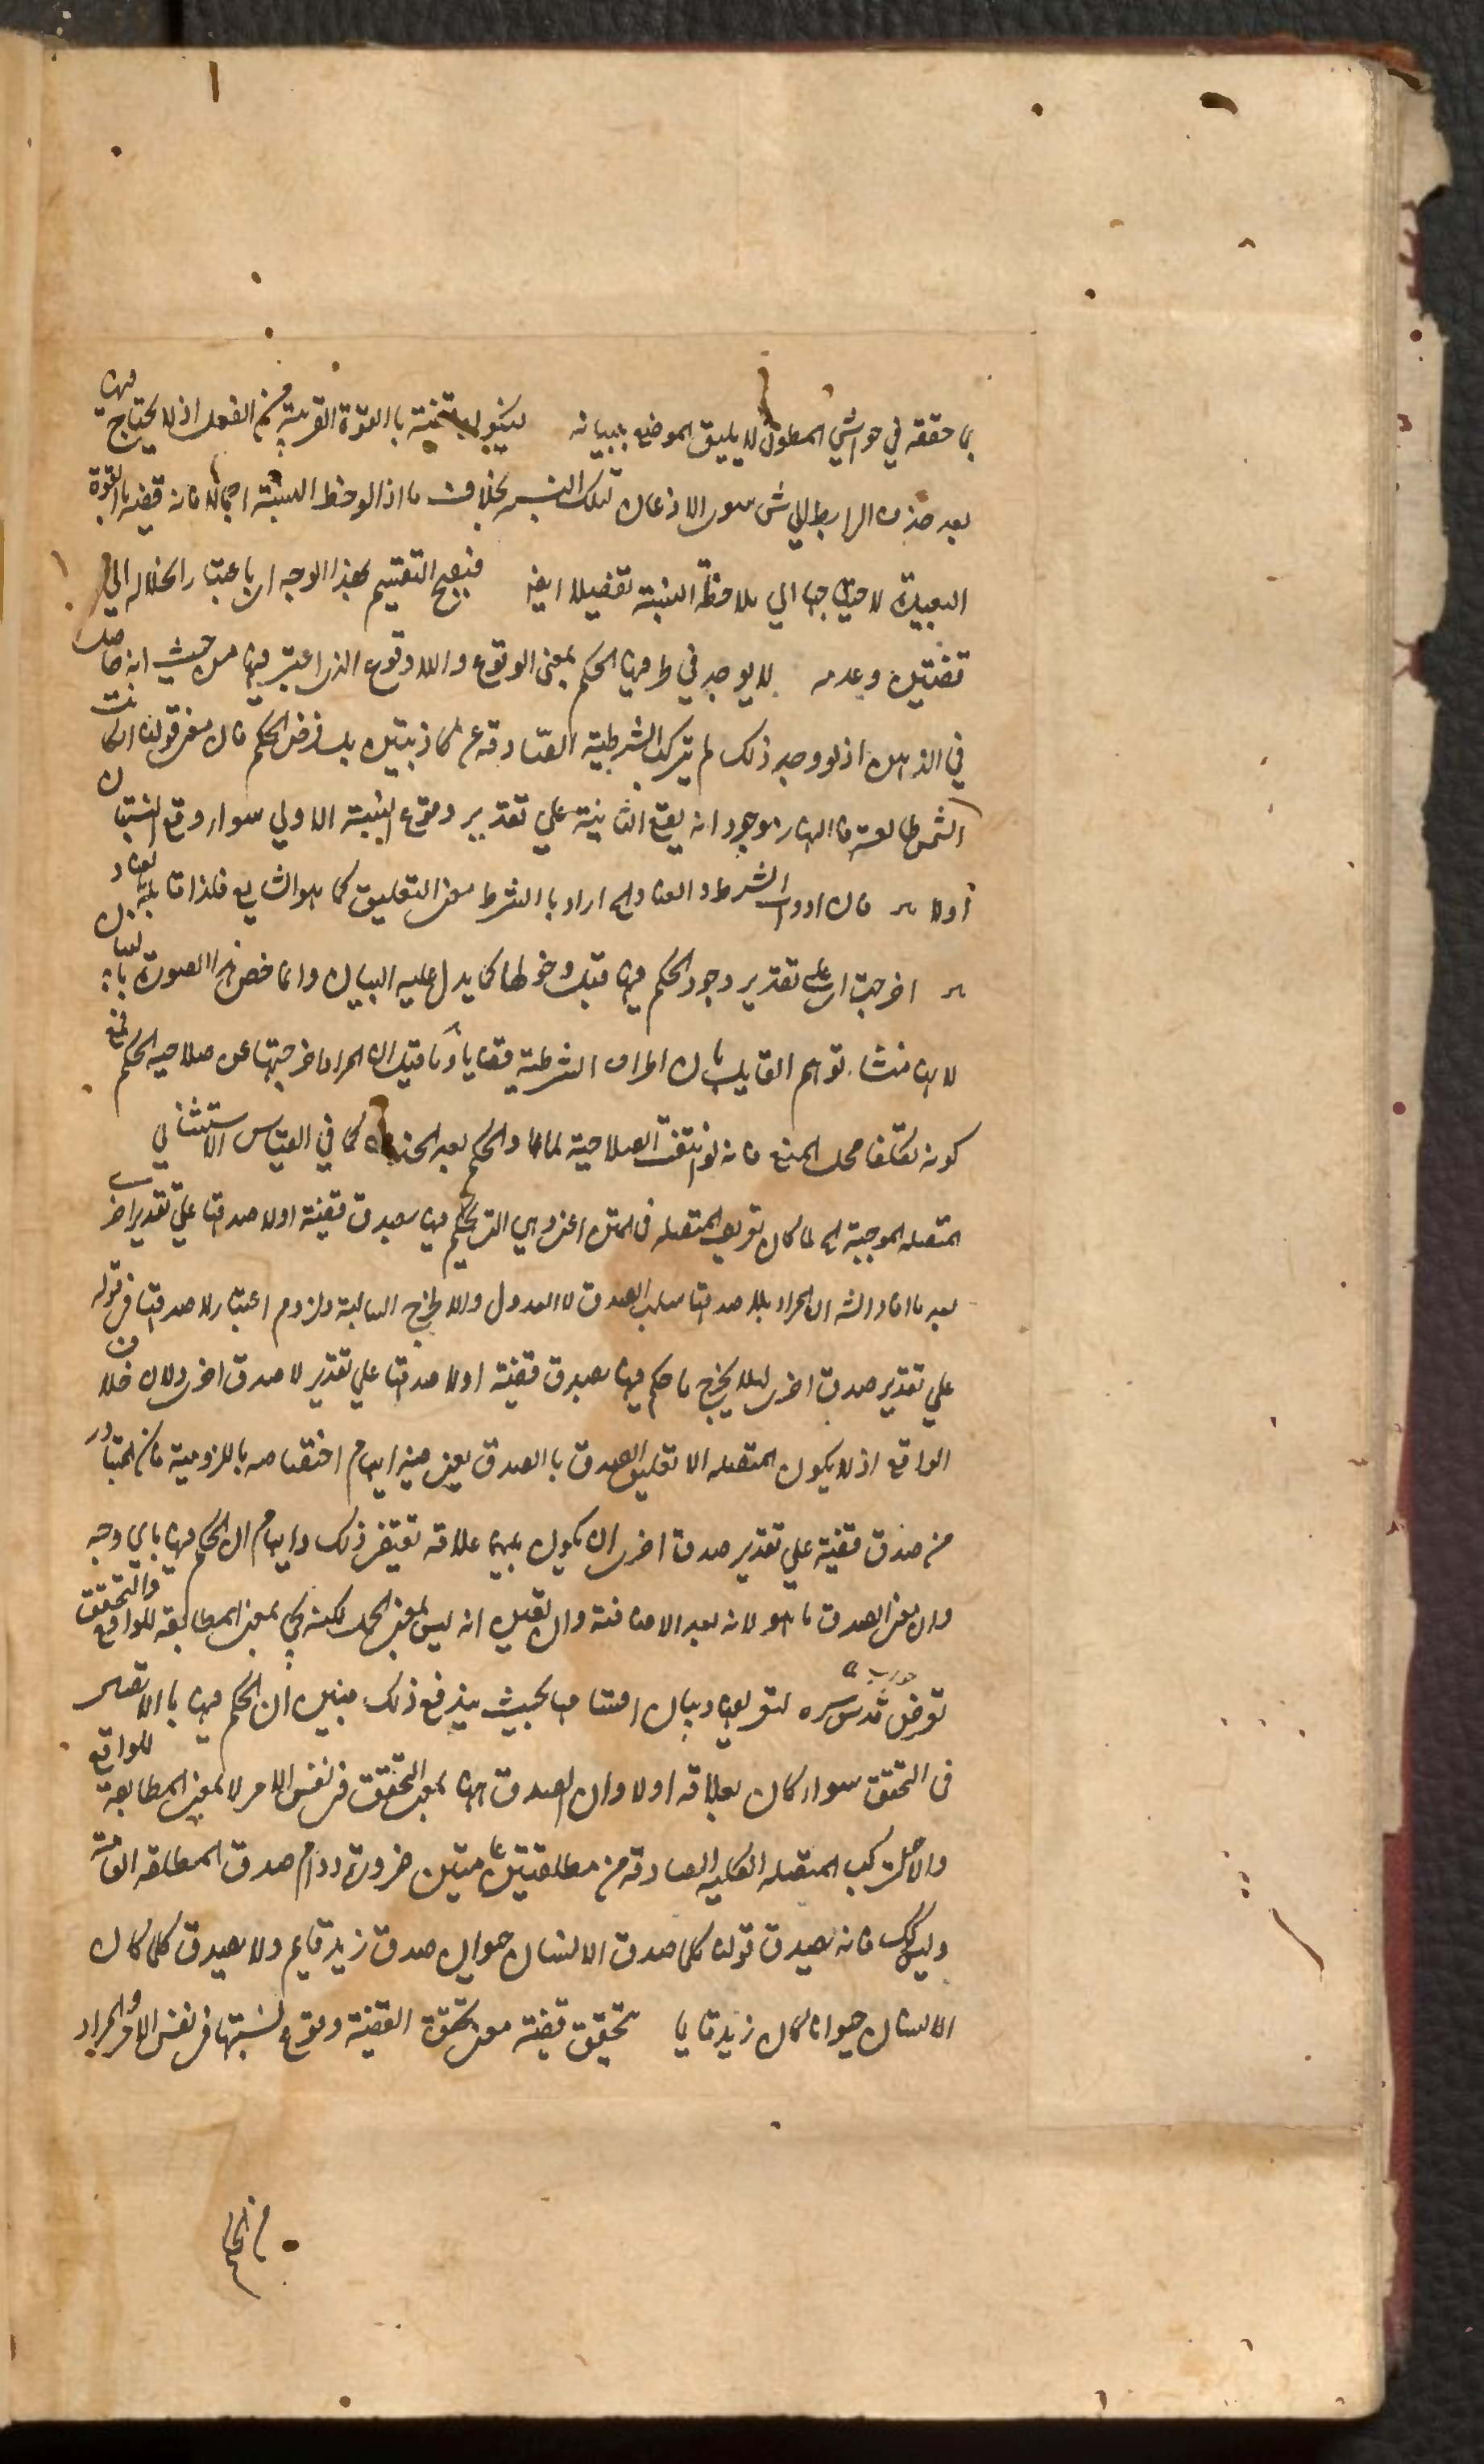 بما حققه في حواشي المطول لا يليق الموضع ببيانه فيكون قضية باالقوة القريبة من الفعل اذ لا يحتاج فيها
بعد حذف الرابط الي شئ سوى الاذعان لتلك النسبة بخلاف ما اذا لوحظ النسبة اجمالا فانه قضية باالقوة
البعيدة لاحتياجها الي ملاحظة النسبة تفصيلا ايضا فيصح التقسيم بهذا الوجه اى باعتبار انحلاله الي
قضيتين وعدمه لا يوجد في طرفيها الحكم بمعنى الوقوع واللاوقوع الذى اعتبر فيها من حيث انه حاصل
في الذهن اذ لو وجد ذلك لم تتركب الشرطية الصادقة عن كاذبتين بل فرض الحكم فان معنى قولنا ان كانت
الشمس طالعة فاالنهار موجود انه يقع الثانية علي تقدير وقوع النسبة الاولي سواء وقع النسبتان
اولا قال ادوات الشرط والعناد الخ اراد باالشرط معنى التعليق كما هو الشايع فلذا قابله بالعناد
اخرجت اى علي تقدير وجود الحكم فيها قبل دخولها كما يدل عليه البيان وانما خص هذا الصورة بالبيان
لانها منشاء توهم القايل بان اطراف الشرطية قضايا وما قيل ان المراد اخرجتها عن صلاحية الحكم فمع
كونه تكلفا محل المنع فانه لو انتفت الصلاحية لما عاد الحكم بعد الحذف كما في القياس الاستثنائي
المتصلة الموجبة الخ لما كان تعريف المتصلة في المتن اعنى وهي التي يحكم فيها بصدق قضية اولا صدقها علي تقدير اخرى
بعد ما افاد الشه ان المراد بلا صدقها سلب الصدق لا العدول والا لخرج السالبة ولزوم اعتبار لا صدقها في قوله
علي تقدير صدق اخرى لئلا يخرج ما حكم فيها بصدق قضية اولا صدقها علي تقدير لا صدق اخرى ولان خلاف
الواقع اذ لا يكون المتصلة الا تعليق الصدق باالصدق بقى فيه ايهام اختصاصه باللزومية فان المتبادر
من صدق قضية علي تقدير صدق اخرى ان يكون بينهما علاقة تقتضى ذلك وايهام ان الحكم فيها باى وجه
وان معنى الصدق ما هو لانه بعد الاضافة وان تعين انه ليس بمعنى الحمل لكنه يجئ بمعنى المطابقة للواقع والتحقق
تعرض قدس سره لتعريفها وبيان اقسامها بحيث يندفع ذلك فبين ان الحكم فيها باالاتصال
في التحقق سواء كان بعلاقة اولا وان الصدق ههنا بمعنى التحقق في نفس الامر لا بمعنى المطابقة للواقع
والا لم تتركب المتصلة الكلية الصادقة من مطلقتين عامتين ضرورة دوام صدق المطلقة العامة
وليس كذلك فانه يصدق قولنا كلما صدق الانسان حيوان صدق زيد قايم ولا يصدق كلما كان
الانسان حيوانا كان زيد قايما تحقق قضية معنى تحقق القضية وقوع نسبتها في نفس الامر والمراد
من الحكم